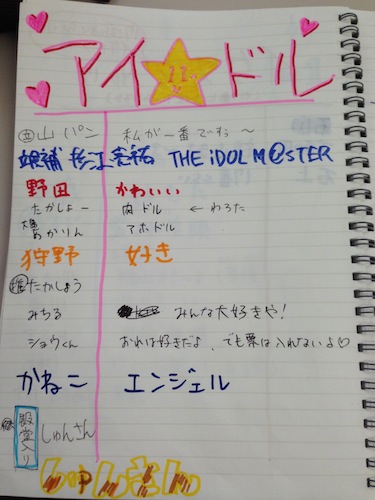 アイドル
西山パン 私が一番ですぅ～
候補 杉江 THE iDOL M@STER
野田 かわいい
たかしょー 肉ドル ← わろた
あかりん アホドル
狩野 好き
たかしょう
みちる みんな大好きや!
ショウくん おれは好きだよ、でも票は入れないよ♡
かねこ エンジェル
殿堂入り しゅんさん
しゅんさん